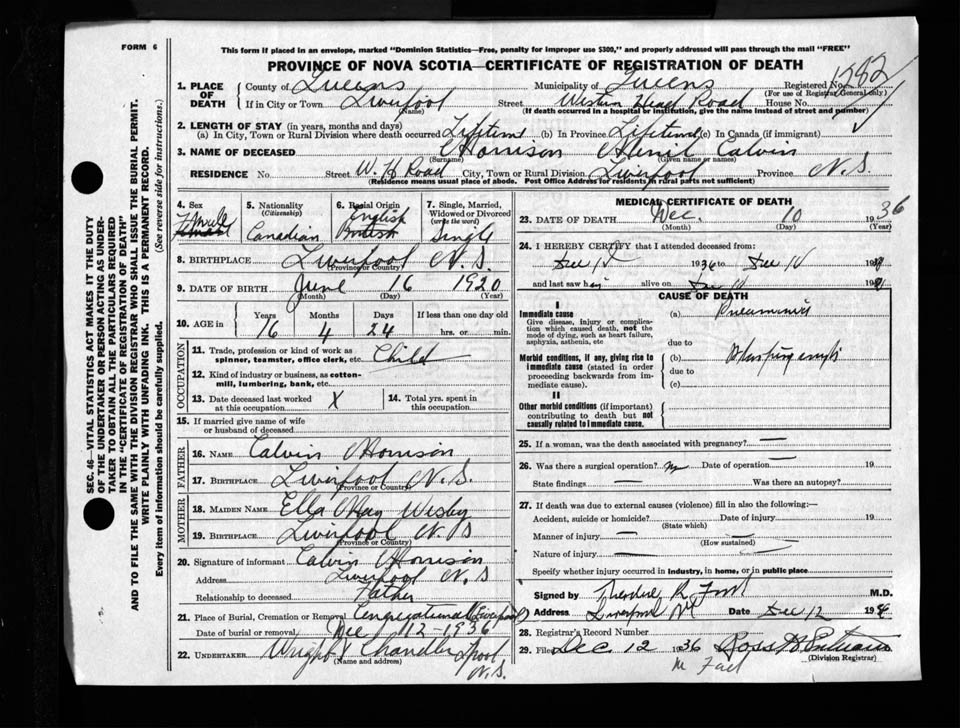 FORM 6
This form if placed in an envelope, marked "Dominion Statistics—Free, penalty for improper use $300," and properly addressed will pass through the mail "FREE"
PROVINCE OF NOVA SCOTIA—CERTIFICATE OF REGISTRATION OF DEATH
SEC. 46—VITAL STATISTICS ACT MAKES IT THE DUTY
OF THE UNDERTAKER OR PERSON ACTING AS UNDER-
TAKER TO OBTAIN ALL THE PARTICULARS REQUIRED
IN THE "CERTIFICATE OF REGISTRATION OF DEATH"
AND TO FILE THE SAME WITH THE DIVISION REGISTRAR WHO SHALL ISSUE THE BURIAL PERMIT.
WRITE PLAINLY WITH UNFADING INK. THIS IS A PERMANENT RECORD.
Every item of information should be carefully supplied. (See reverse side for instructions.)
1. PLACE OF DEATH County of Queens Municipality of Queens Registered No.
(For use of Registrar General only)
If in City or Town Liverpool Street Western Head Road House No.
(Name) (If death occurred in a hospital or institution, give the name instead of street and number)
2. LENGTH OF STAY (in years, months and days)
(a) In City, Town or Rural Division where death occurred Lifetime (b) In Province Lifetime (c) In Canada (if immigrant)
3. NAME OF DECEASED Calvin
(Surname) (Given name or names)
RESIDENCE No. Street W. H Road City, Town or Rural Division Liverpool Province N.S.
(Residence means usual place of abode. Post Office Address for residents in rural parts not sufficient)
4. Sex
5. Nationality (Citizenship) Canadian
6. Racial Origin English British
7. Single, Married, Widowed or Divorced (write the word) Single
8. BIRTHPLACE Liverpool N.S.
(Province or Country)
9. DATE OF BIRTH June 16 1920
(Month) (Day) (Year)
10. AGE in Years Months Days If less than one day old
16 4 24 hrs. or min.
OCCUPATION
11. Trade, profession or kind of work as spinner, teamster, office clerk, etc. Child
12. Kind of industry or business, as cotton-mill, lumbering, bank, etc.
13. Date deceased last worked at this occupation X 14. Total yrs. spent in this occupation
15. If married give name of wife or husband of deceased
FATHER
16. NAME Calvin
17. BIRTHPLACE Liverpool N.S.
(Province or Country)
MOTHER
18. MAIDEN NAME Ella May
19. BIRTHPLACE Liverpool N.S
(Province or Country)
20. Signature of informant Calvin
Address Liverpool N.S
Relationship to deceased Father
21. Place of Burial, Cremation or Removal Congregational (Liverpool)
Date of burial or removal Dec 12 1936
22. UNDERTAKER Wright Chandler Lpool N.S.
(Name and address)
MEDICAL CERTIFICATE OF DEATH
23. DATE OF DEATH Dec. 10 1936
(Month) (Day) (Year)
24. I HEREBY CERTIFY that I attended deceased from:
Dec 1936 to Dec 19
and last saw h alive on Dec 19
CAUSE OF DEATH
I
Immediate cause
Give disease, injury or complication which caused death, not the mode of dying, such as heart failure, asphyxia, asthenia, etc
(a)
due to
Morbid conditions, if any, giving rise to immediate cause (stated in order proceeding backwards from immediate cause).
(b)
due to
(c)
II
Other morbid conditions (if important) contributing to death but not causally related to immediate cause.
25. If a woman, was the death associated with pregnancy? —
26. Was there a surgical operation? No Date of operation 19
State findings — Was there an autopsy?
27. If death was due to external causes (violence) fill in also the following:—
Accident, suicide or homicide? Date of injury 19
(State which)
Manner of injury —
(How sustained)
Nature of injury —
Specify whether injury occurred in industry, in home, or in public place
Signed by Theodore R Ford M.D.
Address Liverpool Date Dec 12 19
28. Registrar's Record Number
29. Filed Dec. 12 1936
(Division Registrar)